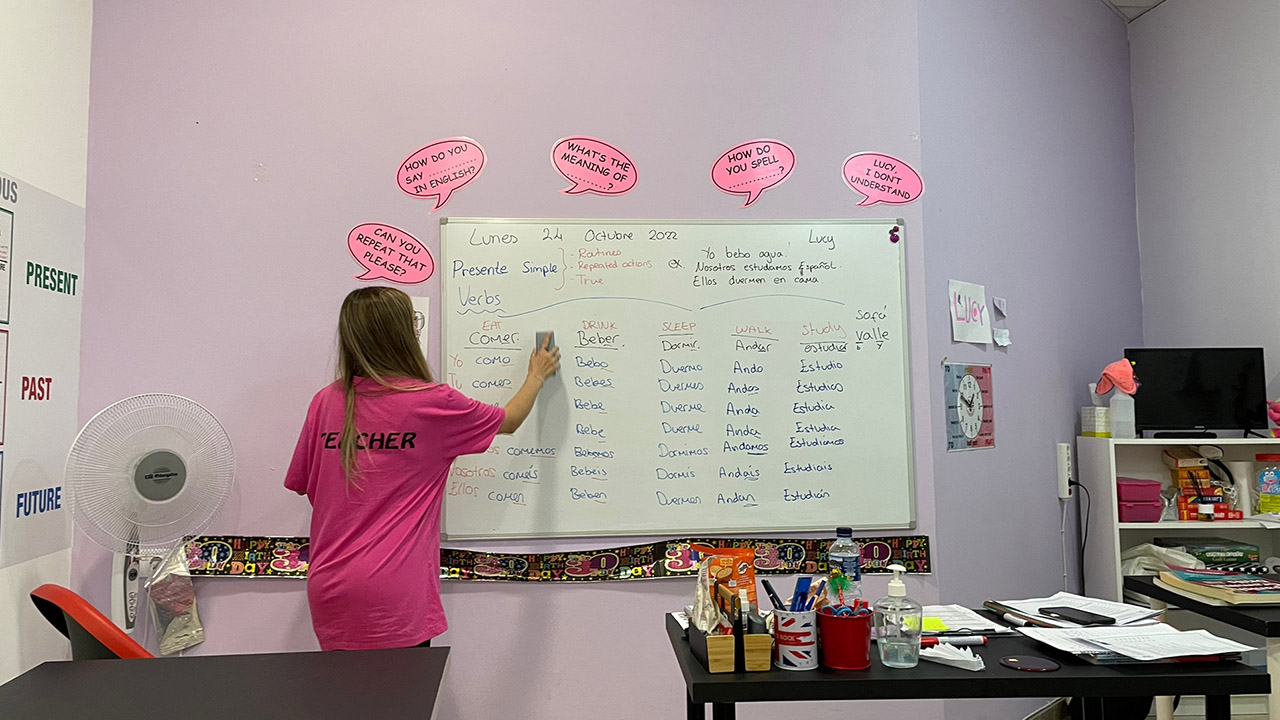 HOW DO YOU
SAY ............
IN ENGLISH?
WHAT'S THE
MEANING OF
............?
HOW DO
YOU SPELL
............?
LUCY,
I DON'T
UNDERSTAND
CAN YOU
REPEAT THAT
PLEASE?
OUS
PRESENT
PAST
FUTURE
Lunes 24 Octubre 2022 Lucy
Presente Simple
- Routines
- Repeated actions
- True
ex. Yo bebo agua.
Nosotros estudiamos Español.
Ellos duermen en cama
Verbs
sofá
valle
b y
EAT DRINK SLEEP WALK STUDY
Comer Beber. Dormir. Andar estudiar
Yo como Bebo Duermo Ando Estudio
Tu comes Bebes Duermes Andas Estudias
Bebe Duerme Anda Estudia
Bebe Duerme Anda Estudia
comemos Bebemos Dormimos Andamos Estudiamos
Vosotros coméis Bebeis Dormís Andais Estudiais
Ellos comen Beben Duermen Andan Estudian
TEACHER
LUCY
HAPPY BIRTHDAY 30
ROCK